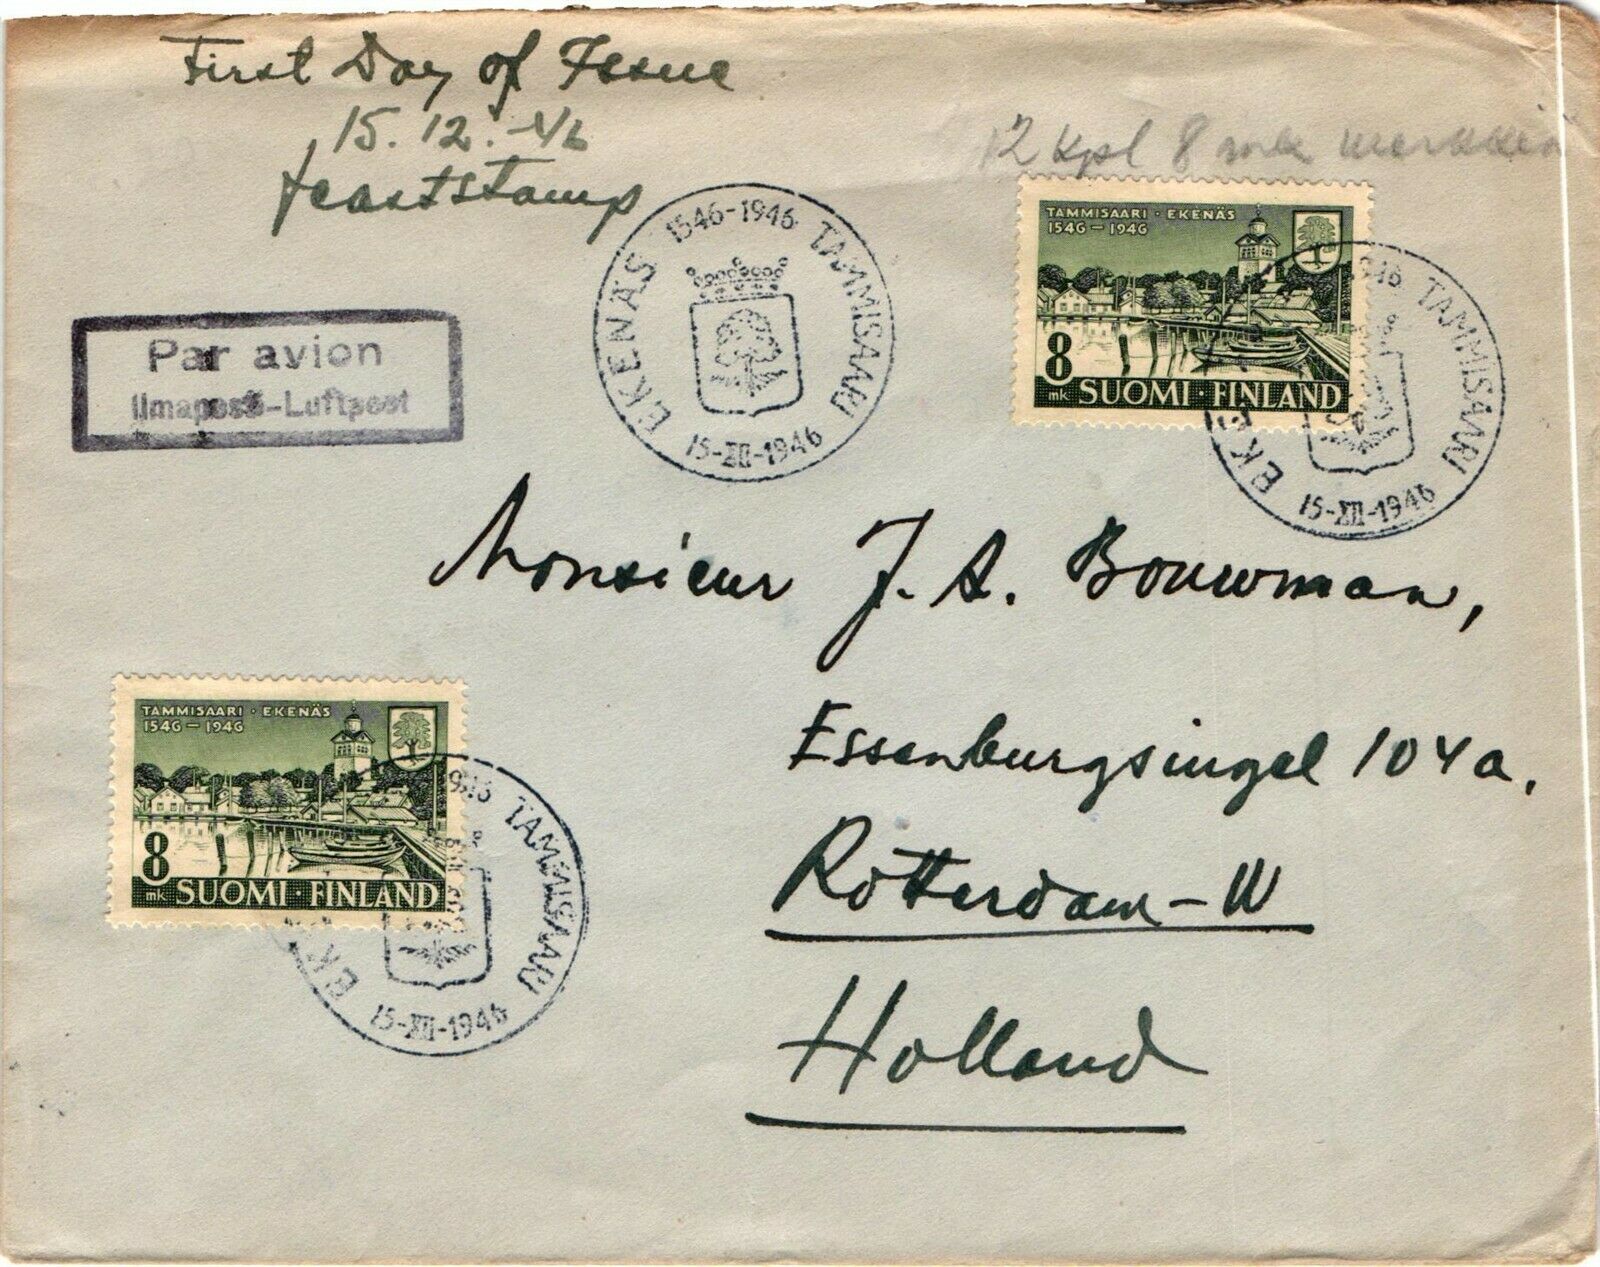 First Day of Issue
15.12.-46
feaststamp
12 kpl 8 mk merkkeiä
1546-1946 TAMMISAARI
EKENÄS
15-XII-1946
TAMMISAARI · EKENÄS
1546 - 1946
8
mk SUOMI · FINLAND
TAMMISAARI
EK
15-XII-1946
Par avion
Ilmaposti-Luftpost
Monsieur J. A. Bouwman,
Essenburgsingel 104a.
Rotterdam-W
Holland
TAMMISAARI · EKENÄS
1546 - 1946
8
mk SUOMI · FINLAND
TAMMISAARI
EK
15-XII-1946